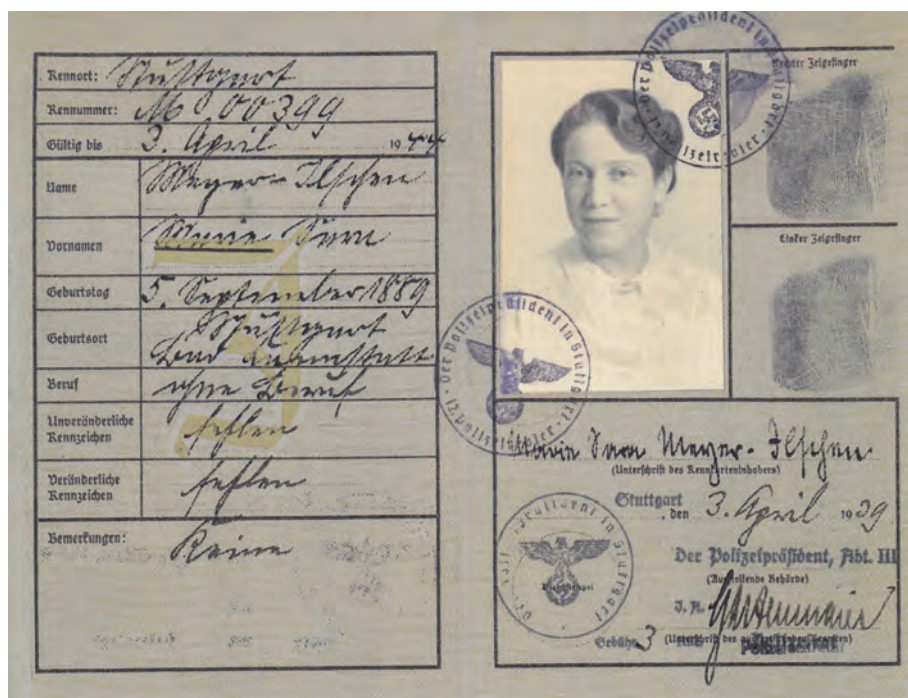 Kennort: Stuttgart
Kennummer: M 00399
Gültig bis 3. April 1944
Name Meyer-Ilschen
Vornamen Marie Sara
Geburtstag 5. September 1889
Geburtsort Stuttgart
Bad Cannstatt
Beruf ohne Beruf
Unveränderliche
Kennzeichen fehlen
Veränderliche
Kennzeichen fehlen
Bemerkungen: Keine
J
Der Polizeipräsident in Stuttgart
Polizeirevier
Rechter Zeigefinger
Linker Zeigefinger
Der Polizeipräsident in Stuttgart
12. Polizeirevier
Marie Sara Meyer-Ilschen
(Unterschrift des Kennkarteninhabers)
Stuttgart, den 3. April 1939
Der Polizeipräsident, Abt. III
(Ausstellende Behörde)
Polizeipräsident in Stuttgart
Dienststempel
J. A.
(Unterschrift des ausfertigenden Beamten)
Gebühr 3